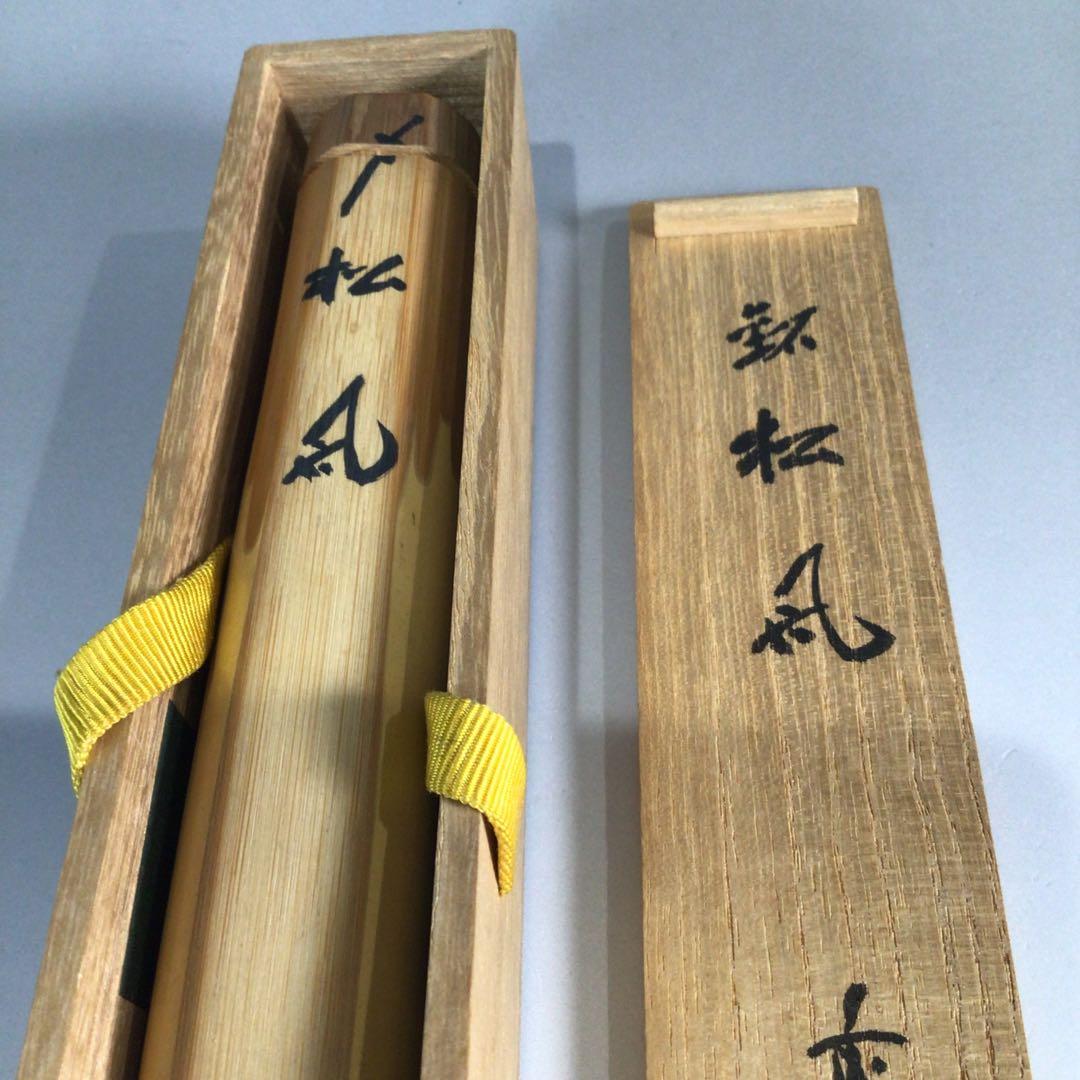 松風
銘 松風